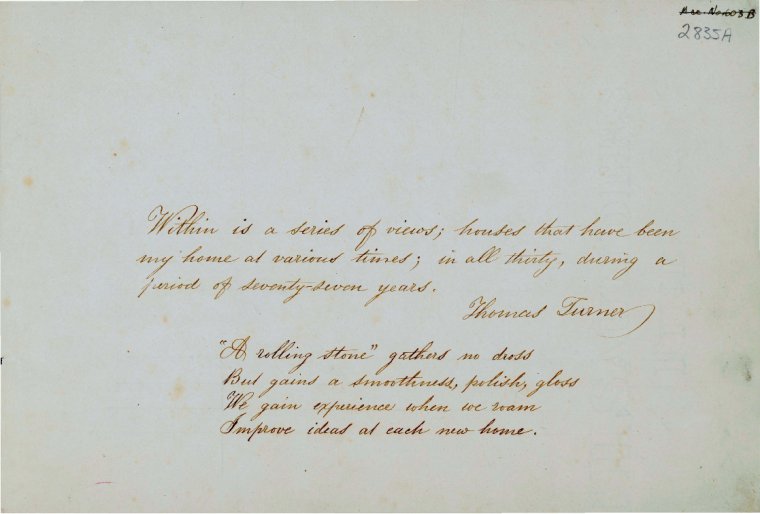 2835A
Within is a series of views; houses that have been
my home at various times; in all thirty, during a
period of seventy-seven years.
Thomas Turner
"A rolling stone" gathers no dross
But gains a smoothness, polish, gloss
We gain experience when we roam
Improve ideas at each new home.